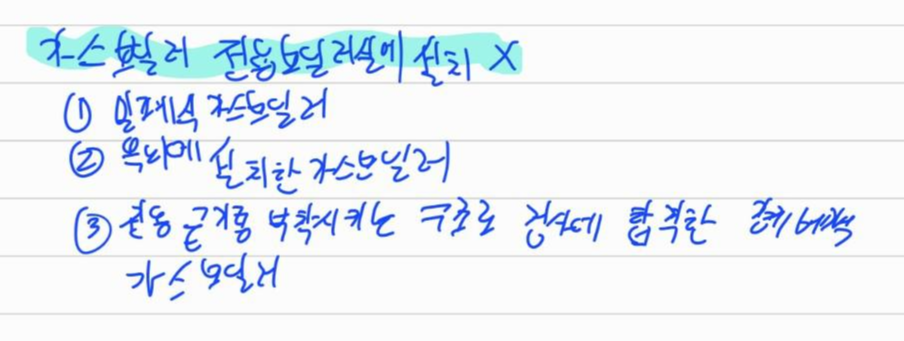 가스보일러 전용보일러실에 설치 X
① 밀폐식 가스보일러
② 옥외에 설치한 가스보일러
③ 전용 급기통 부착시키는 구조로 검사에 합격한 강제배기식
가스보일러